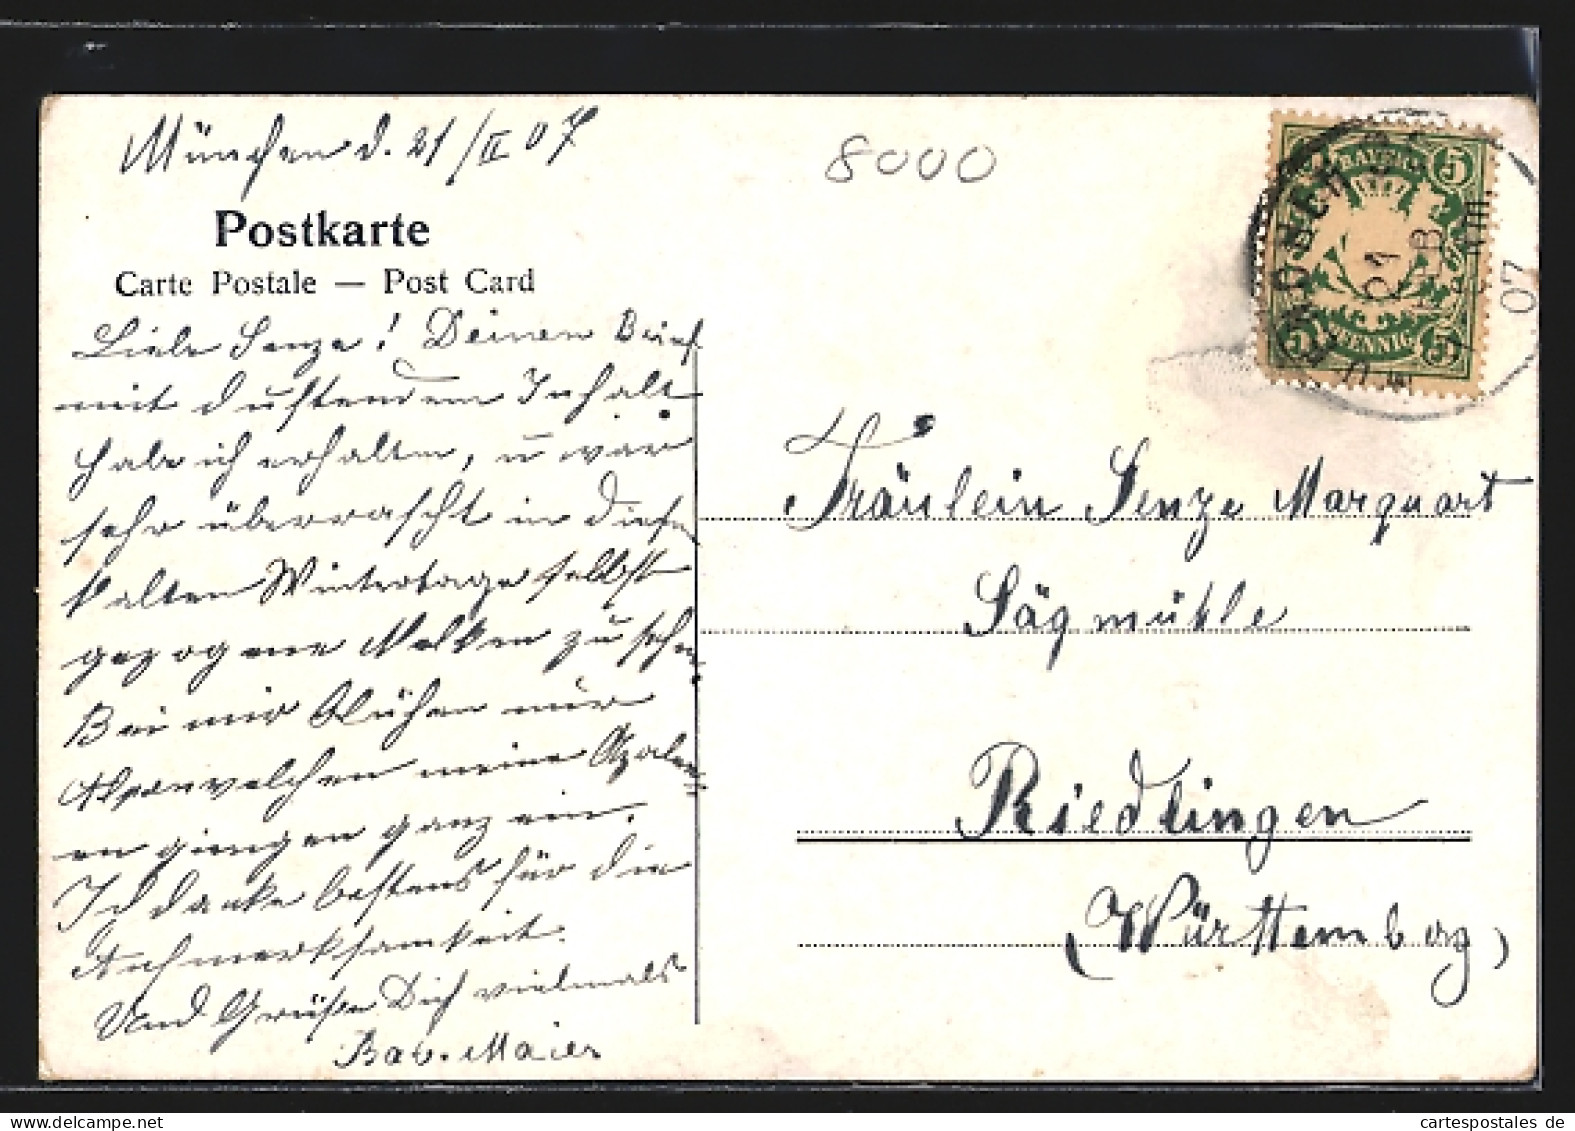 München d. 21/II 07
8000
Postkarte
Carte Postale — Post Card
Liebe Senze! Deinen Brief
mit duftendem Inhalt
habe ich erhalten, u war
sehr überrascht in diesen
kalten Wintertage selbst
gezogene Nelken zu sehen.
Bei mir blühen nur
Alpenveilchen meine Azalee-
en giengen ganz ein.
Ich danke bestens für die
Aufmerksamkeit.
Und Grüße Dich vielmals
Bab. Maier
BAYERN
5
21
FEB
07
5 PFENNIG 5
Fräulein Senze Marquart
Sägmühle
Riedlingen
(Württemberg)
cartespostales de